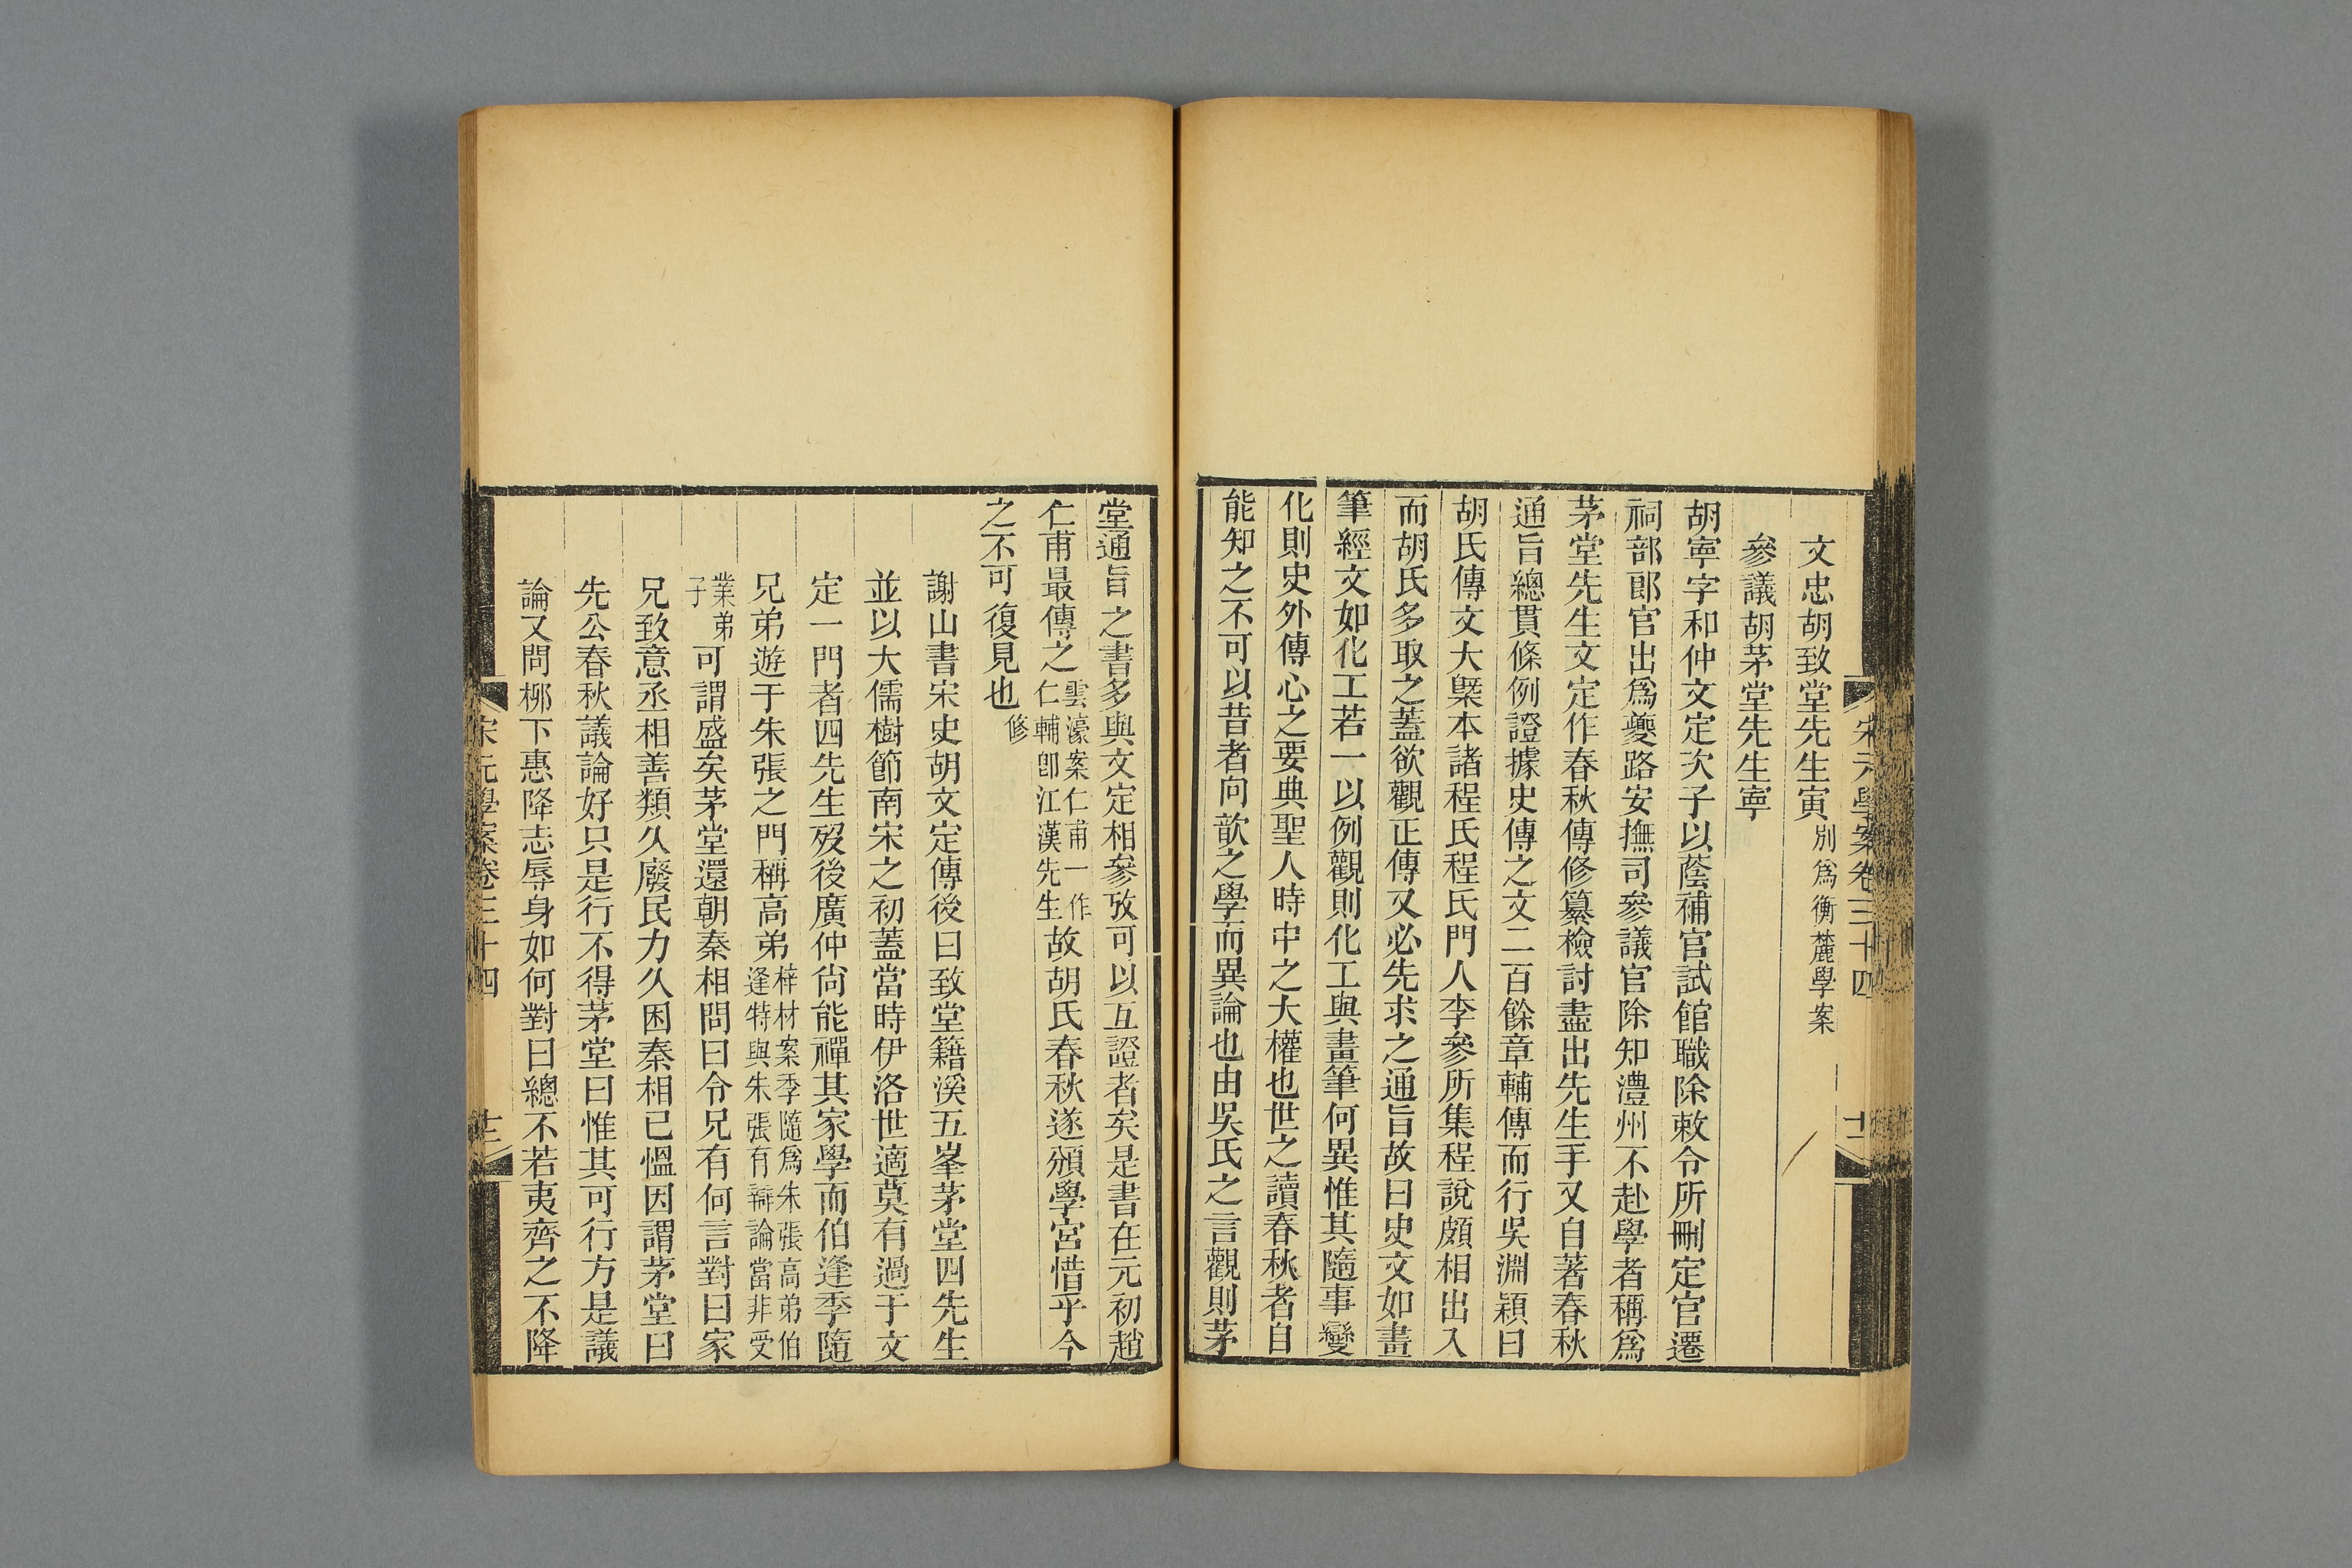 文忠胡致堂先生寅別爲衡麓學案
參議胡茅堂先生寧
胡寧字和仲文定次子以蔭補官試館職除敕令所刪定官遷
祠部郎官出爲夔路安撫司參議官除知澧州不赴學者稱爲
茅堂先生文定作春秋傳修纂檢討盡出先生手又自著春秋
通旨總貫條例證據史傳之文二百餘章輔傳而行吳淵穎曰
胡氏傳文大槩本諸程氏程氏門人李參所集程說頗相出入
而胡氏多取之蓋欲觀正傳又必先求之通旨故曰史文如畫
筆經文如化工若一以例觀則化工與畫筆何異惟其隨事變
化則史外傳心之要典聖人時中之大權也世之讀春秋者自
能知之不可以昔者向歆之學而異論也由吳氏之言觀則茅
宋元學案卷三十四
堂通旨之書多與文定相參攷可以互證者矣是書在元初趙
仁甫最傳之雲濠案仁甫一作仁輔卽江漢先生故胡氏春秋遂頒學宮惜乎今
之不可復見也修
謝山書宋史胡文定傳後曰致堂籍溪五峯茅堂四先生
並以大儒樹節南宋之初蓋當時伊洛世適莫有過于文
定一門者四先生歿後廣仲尙能禪其家學而伯逢季隨
兄弟遊于朱張之門稱高弟梓材案季隨爲朱張高弟伯逢特與朱張有辯論當非受
業弟子可謂盛矣茅堂還朝秦相問曰令兄有何言對曰家
兄致意丞相善類久廢民力久困秦相已慍因謂茅堂曰
先公春秋議論好只是行不得茅堂曰惟其可行方是議
論又問桞下惠降志辱身如何對曰總不若夷齊之不降
宋元學案卷三十四